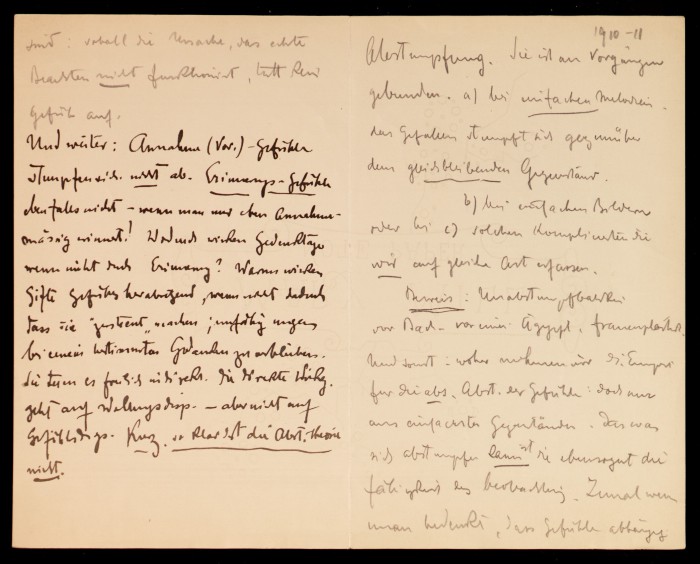 1910-11
Abstumpfung. Sie ist an Vorgänge
gebunden. a) bei einfachen Melodien.
das Gefallen stumpft sich gegenüber
dem gleichbleibenden Gegenstand.
b) bei einfachen Bildern
oder bei c) solchen Komplizierten die
wir auf gleiche Art erfassen.
Beweis: Unabstumpfbarkeit
vor Bach - vor einer Ägypt. Frauenplastik.
Und sonst: woher nehmen wir die
für die abs. Abst. der Gefühle: doch nur
aus einfachsten Gegenständen. Das was
sich abstumpfen kann ist die ebensogut die
Fähigkeit des Zumal wenn
man bedenkt, dass Gefühle abhängig
sind: sobald die Ursache, das echte
nicht funktioniert, tritt kein
Gefühl auf.
Und weiter: Annahme (Vor.)-Gefühle
stumpfen sich nicht ab. Erinnerungs-Gefühle
ebenfalls nicht - wenn man nur eben Annahme-
mässig erinnert! Wodurch wirken Gedenktage
wenn nicht durch Erinnerung? Warum wirken
Gifte Gefühls herabsetzend, wenn nicht dadurch
dass sie "zerstreut" machen; unfähig
bei einem bestimmten Gedanken zu verbleiben.
Sie tun es freilich indirekt. Die direkte Wirkg.
geht auf - aber nicht auf
Gefühlsdisp. Kurz, so klar ist die Abst.-theorie
nicht.